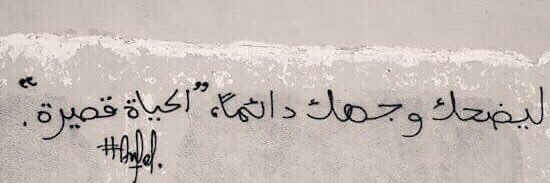 ليضحك وجهك دائمًا، "الحياة قصيرة".